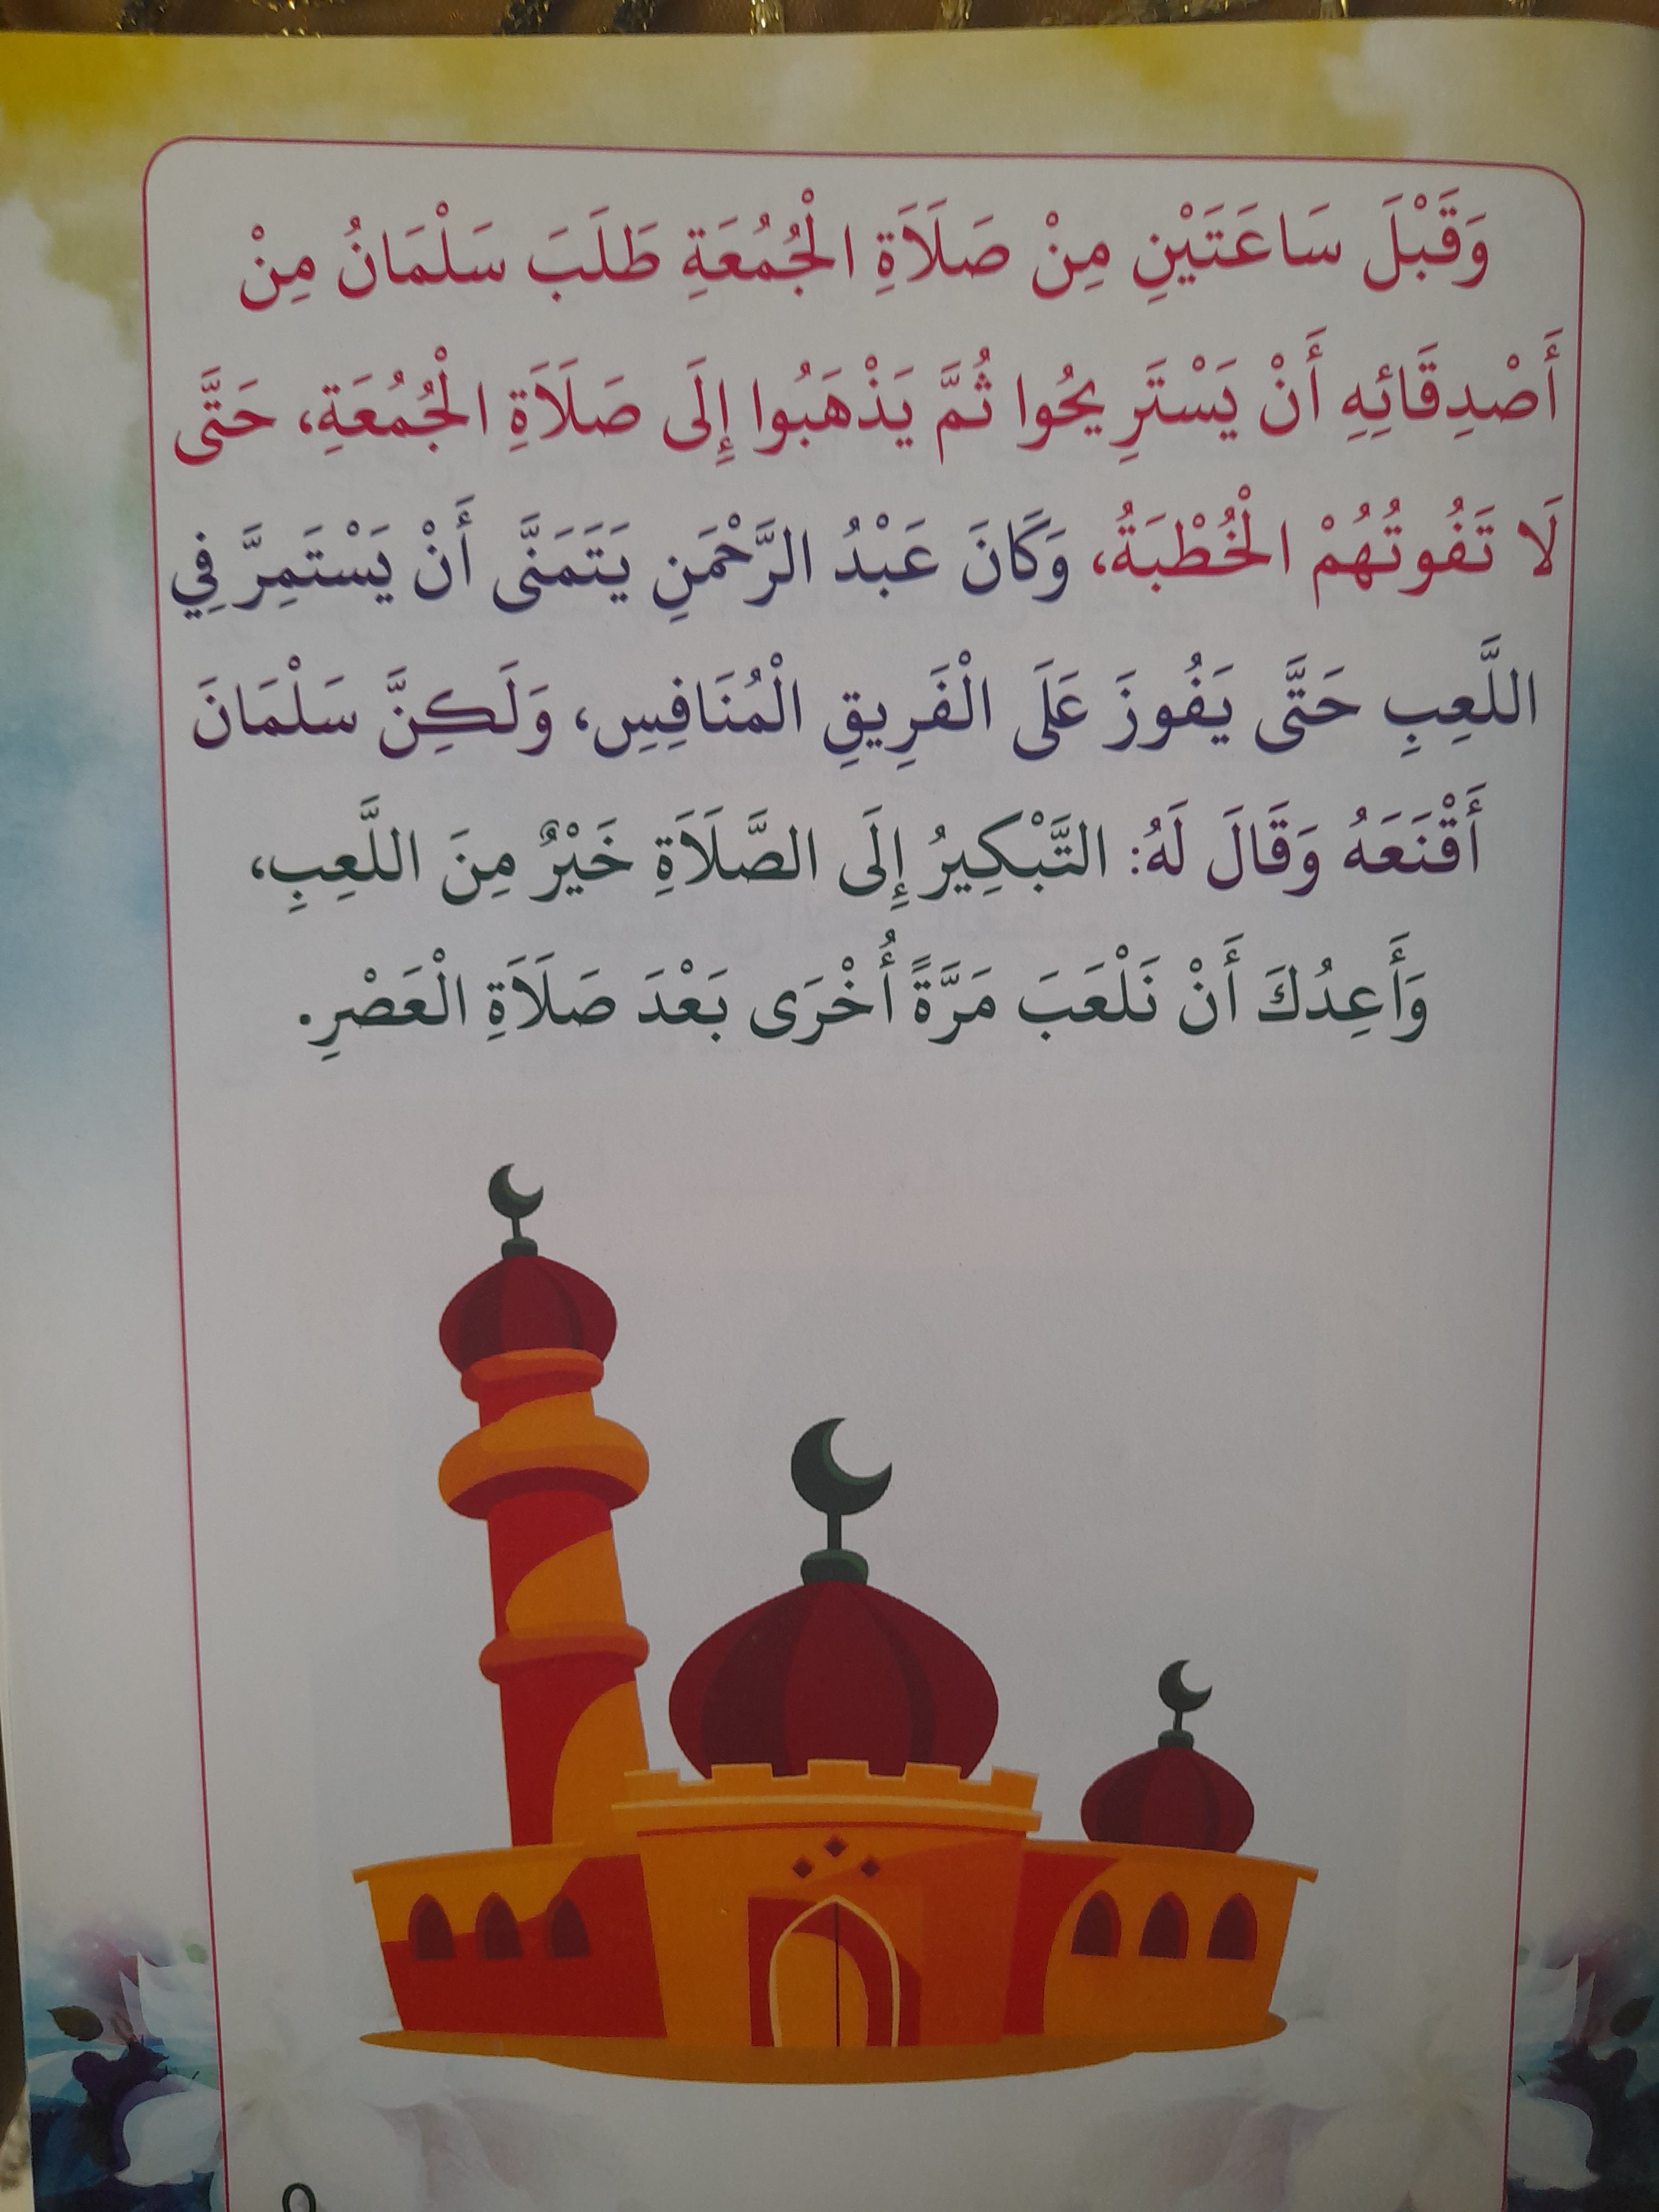 وَقَبْلَ سَاعَتَيْنِ مِنْ صَلَاَةِ الْجُمُعَةِ طَلَبَ سَلْمَانُ مِنْ
أَصْدِقَائِهِ أَنْ يَسْتَرِيحُوا ثُمَّ يَذْهَبُوا إِلَى صَلَاَةِ الْجُمُعَةِ، حَتَّى
لَا تَفُوتُهُمْ الْخُطْبَةُ، وَكَانَ عَبْدُ الرَّحْمَنِ يَتَمَنَّى أَنْ يَسْتَمِرَّ فِي
اللَّعِبِ حَتَّى يَفُوزَ عَلَى الْفَرِيقِ الْمُنَافِسِ، وَلَكِنَّ سَلْمَانَ
أَقْنَعَهُ وَقَالَ لَهُ: التَّبْكِيرُ إِلَى الصَّلَاَةِ خَيْرٌ مِنَ اللَّعِبِ،
وَأَعِدُكَ أَنْ نَلْعَبَ مَرَّةً أُخْرَى بَعْدَ صَلَاَةِ الْعَصْرِ.